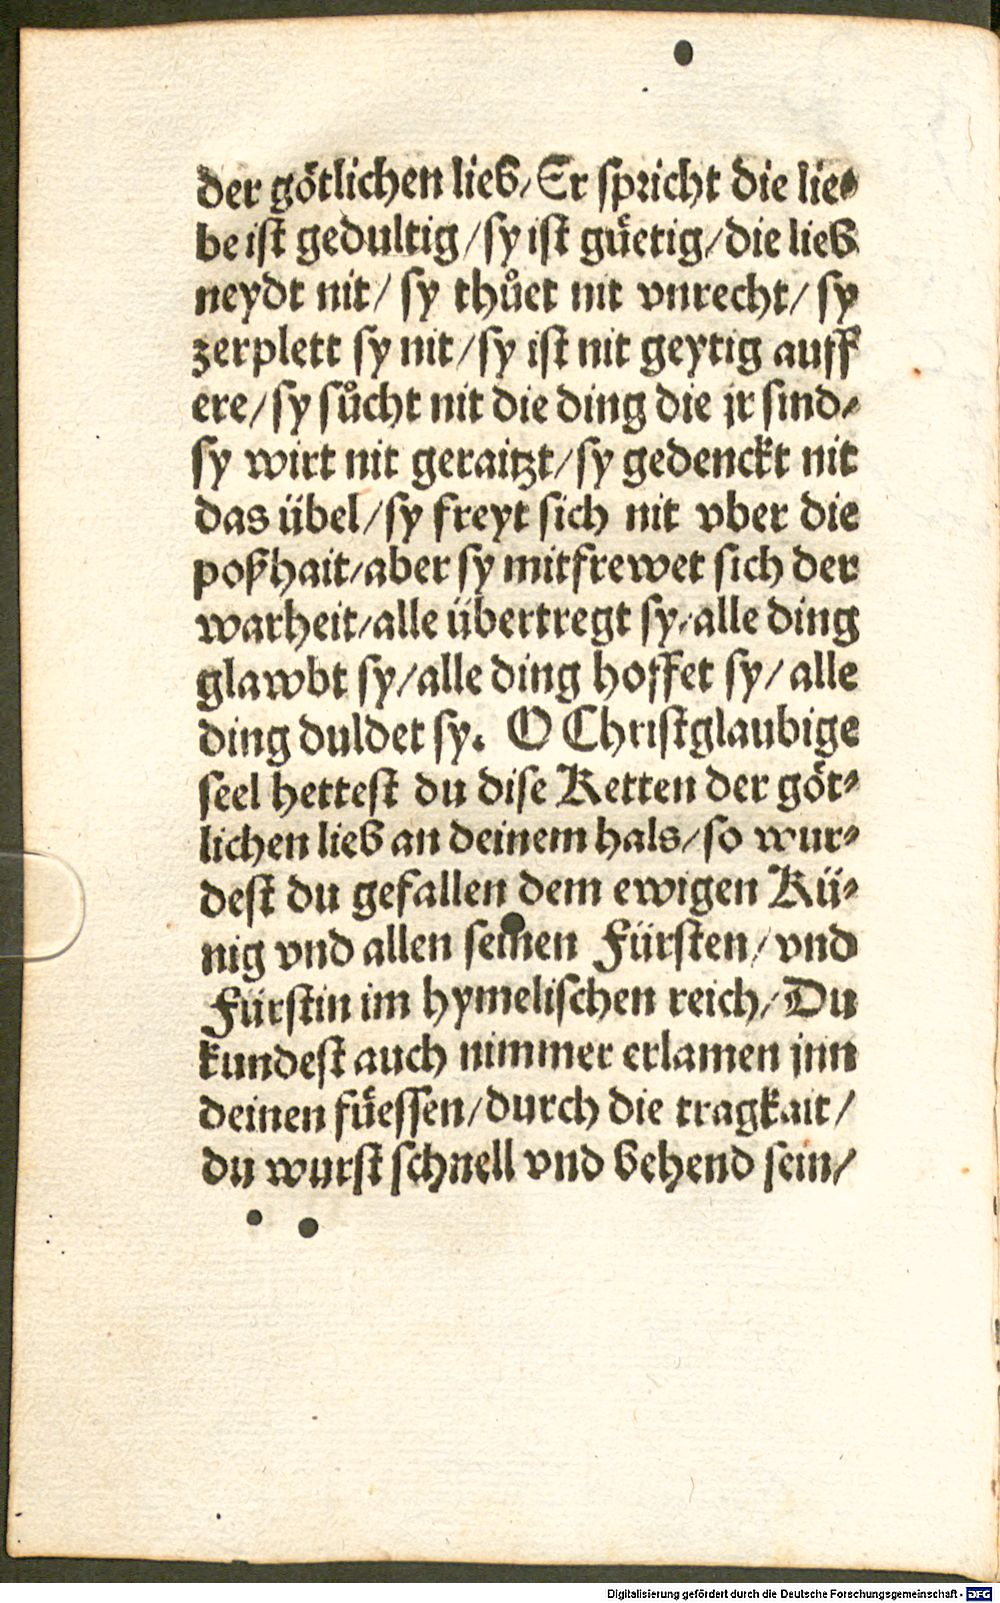 der götlichen lieb/ Er spricht die lie⸗
be ist gedultig/sy ist guͤetig/die lieb
neydt nit/ sy thůet nit vnrecht/ sy
zerplett sy nit/sy ist nit geytig auff
ere/sy sůcht nit die ding die jr sind⸗
sy wirt nit geraitzt/sy gedenckt nit
das übel/sy freyt sich nit vber die
poßhait/aber sy mitfrewet sich der
warheit/alle übertregt sy/alle ding
glawbt sy/alle ding hoffet sy/ alle
ding duldet sy. O Christglaubige
seel hettest du dise Ketten der göt⸗
lichen lieb an deinem hals/so wur⸗
dest du gefallen dem ewigen Kü⸗
nig vnd allen seinen Fürsten/ vnd
Fürstin im hymelischen reich/ Du
kundest auch nimmer erlamen jnn
deinen fuͤessen/durch die tragkait/
du wurst schnell vnd behend sein/
Digitalisierung gefördert durch die Deutsche Forschungsgemeinschaft - DFG